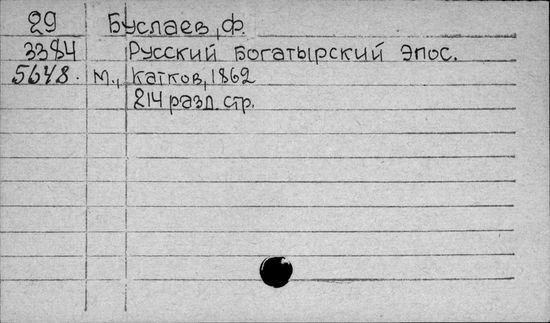 29 Буслаев, Ф.
3384 Русский богатырский эпос.
5648. М., Катков, 1862
214 разд. стр.